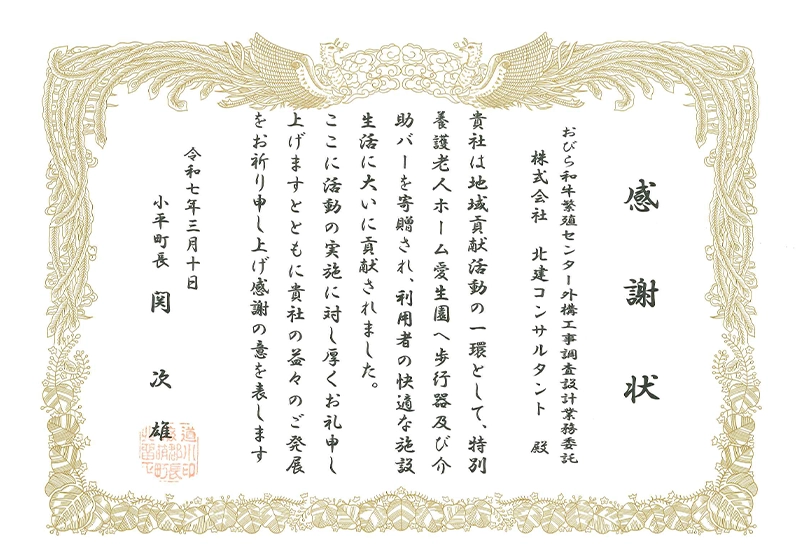 感謝状
おびら和牛繁殖センター外構工事調査設計業務委託
株式会社 北建コンサルタント 殿
貴社は地域貢献活動の一環として、特別
養護老人ホーム愛生園へ歩行器及び介
助バーを寄贈され、利用者の快適な施設
生活に大いに貢献されました。
ここに活動の実施に対し厚くお礼申し
上げますとともに貴社の益々のご発展
をお祈り申し上げ感謝の意を表します
令和七年三月十日
小平町長 関次雄